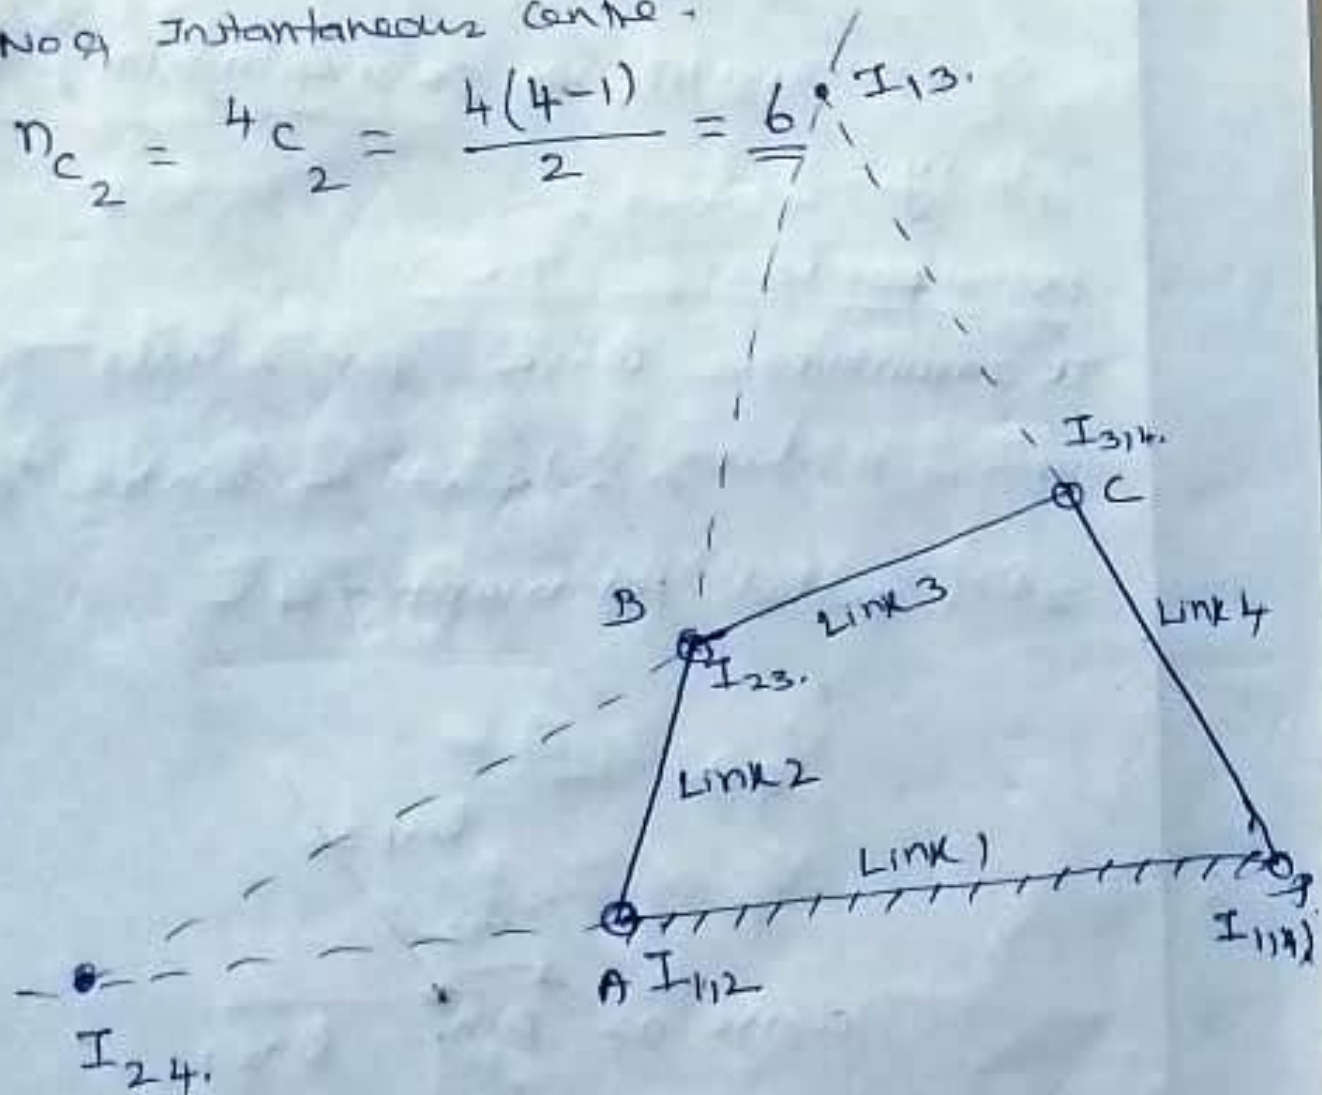 No of Instantaneous Centre.
nC2 = 4C2 = 4(4-1)/2 = 6
I13.
I3,4.
C
B
Link 3
Link 4
I23.
Link 2
Link 1
A I1,2
I1,4
I24.